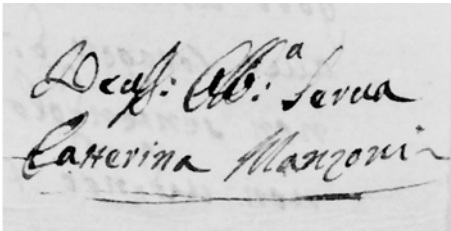 Deuss: Obb:a Serua
Catterina Manzoni